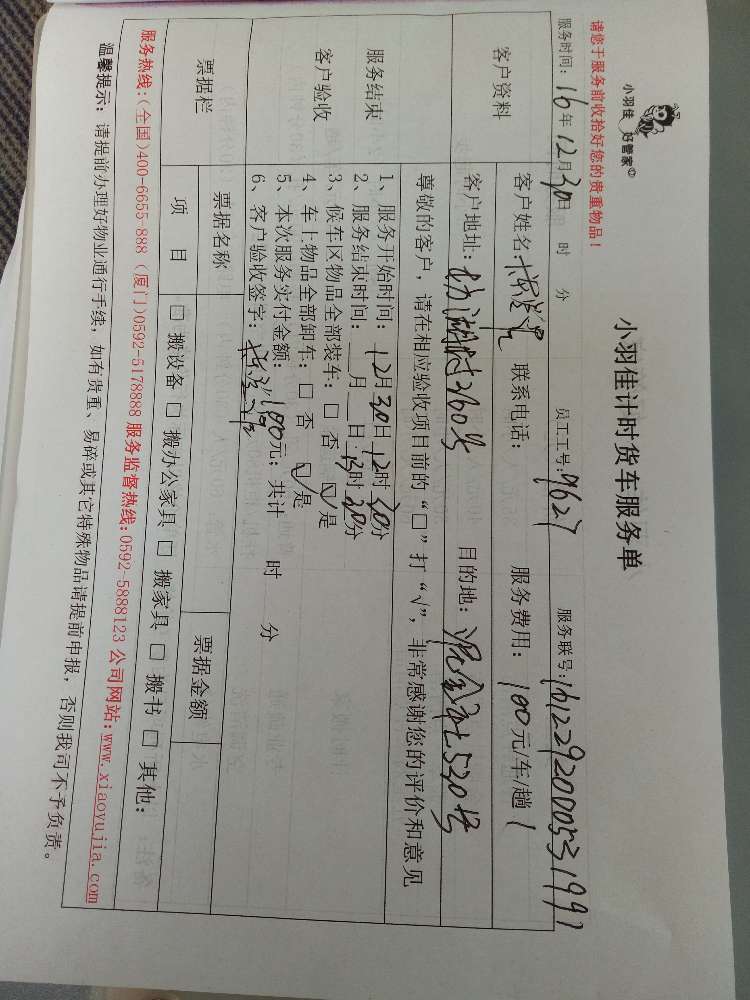 小羽佳 好管家©
小羽佳计时货车服务单
请您于服务前收拾好您的贵重物品！
服务时间：16年12月30 时 分 员工工号：9627 服务联号：1612292000531991
客户资料
客户姓名： 联系电话： 服务费用：100元/车/趟 1
客户地址：坊湖时260号 目的地： 520号
尊敬的客户，请在相应验收项目前的“□”打“√”，非常感谢您的评价和意见
服务结束
客户验收
1、服务开始时间：12月30日12时30分
2、服务结束时间：__月__日：13时30分
3、候车区物品全部装车：□ 否 ☑是
4、车上物品全部卸车：□ 否 ☑是
5、本次服务实付金额：100元；共计 时 分
6、客户验收签字：
票据栏 票据名称 票据金额
项 目 □ 搬设备 □ 搬办公家具 □ 搬家具 □ 搬书 □ 其他：
服务热线：(全国)400-6655-888 (厦门)0592-5178888 服务监督热线：0592-5888123 公司网站：www.xiaoyujia.com
温馨提示：请提前办理好物业通行手续，如有贵重、易碎或其它特殊物品请提前申报，否则我司不予负责。